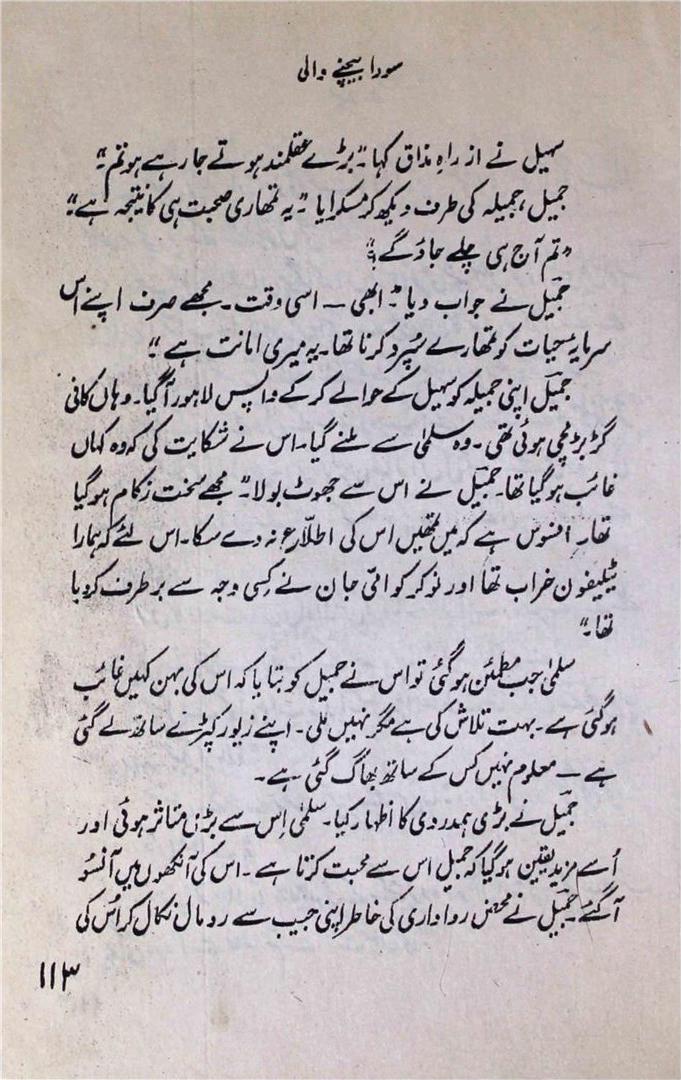 سودا بیچنے والی
سہیل نے از راہِ مذاق کہا "بڑے عقلمند ہوتے جا رہے ہو تم۔"
جمیل، جمیلہ کی طرف دیکھ کر مسکرایا "یہ تمھاری صحبت ہی کا نتیجہ ہے۔"
"تم آج ہی چلے جاؤ گے؟"
جمیل نے جواب دیا "ابھی — اسی وقت۔ مجھے صرف اپنے اس
سرمایہ حیات کو تمھارے سپرد کرنا تھا۔ یہ میری امانت ہے۔"
جمیل اپنی جمیلہ کو سہیل کے حوالے کر کے واپس لاہور آ گیا۔ وہاں کافی
گڑبڑ مچی ہوئی تھی۔ وہ سلمیٰ سے ملنے گیا۔ اس نے شکایت کی کہ وہ کہاں
غائب ہو گیا تھا۔ جمیل نے اس سے جھوٹ بولا "مجھے سخت زکام ہو گیا
تھا۔ افسوس ہے کہ میں تمھیں اس کی اطلاع نہ دے سکا۔ اس لئے کہ ہمارا
ٹیلیفون خراب تھا اور نوکر کو امّی جان نے کسی وجہ سے برطرف کر دیا
تھا۔"
سلمیٰ جب مطمئن ہو گئی تو اس نے جمیل کو بتایا کہ اس کی بہن کہیں غائب
ہو گئی ہے۔ بہت تلاش کی ہے مگر نہیں ملی۔ اپنے زیور کپڑے ساتھ لے گئی
ہے — معلوم نہیں کس کے ساتھ بھاگ گئی ہے۔
جمیل نے بڑی ہمدردی کا اظہار کیا۔ سلمیٰ اس سے بڑی متاثر ہوئی اور
اُسے مزید یقین ہو گیا کہ جمیل اس سے محبت کرتا ہے۔ اس کی آنکھوں میں آنسو
آ گئے۔ جمیل نے محض رواداری کی خاطر اپنی جیب سے رومال نکال کر اُس کی
۱۱۳